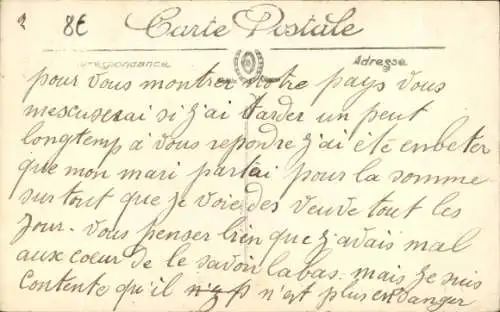 8€
Carte Postale
Correspondance
Adresse
pour vous montrer notre pays vous
mescuserai si j'ai tarder un peut
longtemp à vous repondre j'ai été enbeter
que mon mari partai pour la somme
surtout que je voie des veuve tout les
jour. vous penser bien que j'avais mal
aux coeur de le savoir labas. mais je suis
contente qu'il n'est plus en danger